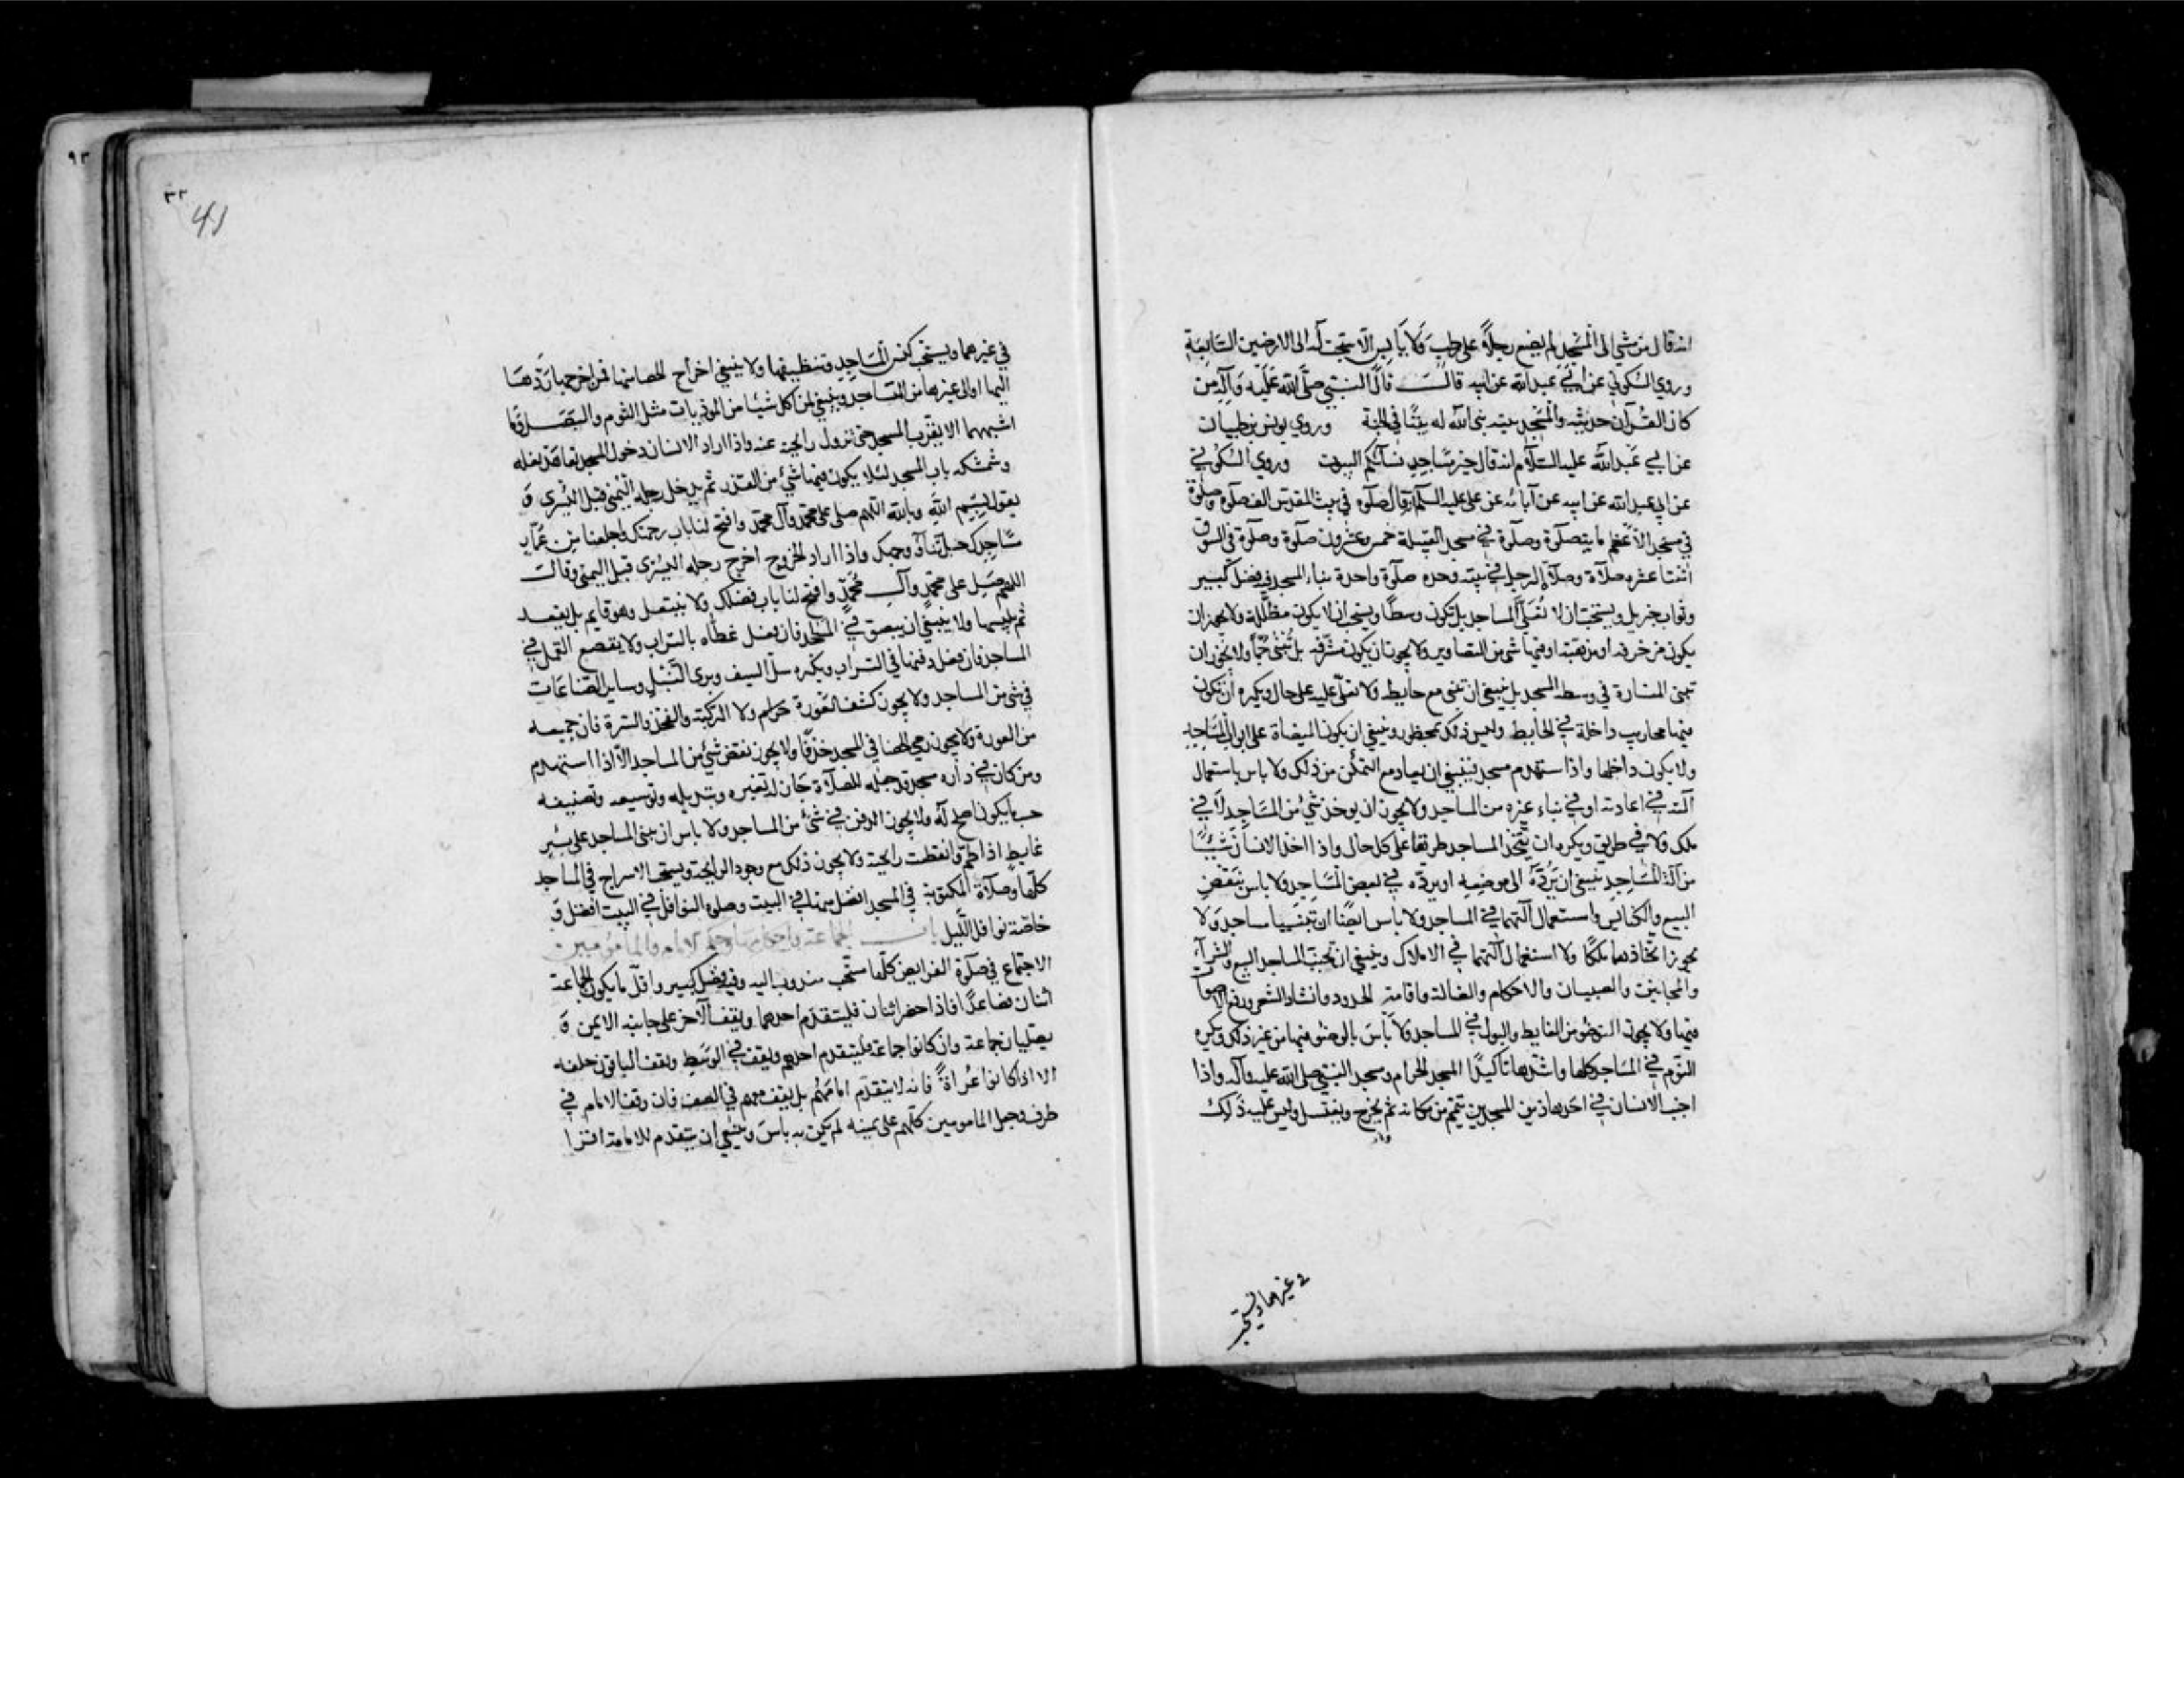 انه قال من مشي الى المسجد لم يضع رجلاً على رطب ولا يابس الا سبحت له الى الارضين السابعة
وروي السكوني عن ابي عبد الله عن ابيه قال قال النبي صلى الله عليه وآله من
كان القرآن حديثه والمسجد بيته بنى الله له بيتًا في الجنة وروي يونس بن ظبيان
عن ابي عبد الله عليه السلام انه قال خير مساجد نسائكم البيوت وروي السكوني
عن ابي عبد الله عن ابيه عن آبائه عن علي عليه السلام قال صلوة في بيت المقدس الف صلوة وصلوة
في مسجد الاعظم مائة صلوة وصلوة في مسجد القبيلة خمس وعشرون صلوة وصلوة في السوق
اثنتا عشره صلاة وصلاة الرجل في بيته وحده صلوة واحدة بناء المسجد فيه فضل كبير
وثواب جزيل ويستحب ان لا تعلّى المساجد بل تكون وسطًا ويستحب ان لا يكون مظللة ولا يجوز ان
يكون مزخرفه او مذهبة او فيها شئ من التصاوير ولا يجوز ان يكون مشرفه بل تبنى جمًّا ولا يجوز ان
تبنى المنارة في وسط المسجد بل ينبغي ان تبنى مع حايطه ولا تعلّى عليه على حال ويكره ان تكون
فيها محاريب داخلة في الحايط وليس ذلك بمحظور وينبغي ان يكون الميضاة على ابواب المساجد
ولا يكون داخلها واذا استهدم مسجد فينبغي ان يعاد مع التمكن من ذلك ولا باس باستعمال
آلته في اعادته او في بناء غيره من المساجد ولا يجوز ان يوخذ شئ من المساجد لا في
ملك ولا في طريق ويكره ان يتخذ المساجد طريقا على كل حال واذا اخذ الانسان شيئًا
من آلة المساجد ينبغي ان يردّه الى موضعه او يردّه في بعض المساجد ولا باس بنقض
البيع والكنايس واستعمال آلتهما في المساجد ولا باس ايضًا ان تبنيا مساجد ولا
يجوز اتخاذهما ملكًا ولا استعمال آلتهما في الاملاك وينبغي ان تجنب المساجد البيع والشراء
والمجانين والصبيان والاحكام والضالة واقامة الحدود وانشاد الشعر ورفع الاصوات
فيها ولا يجوز التوضؤ من الغايط والبول في المساجد ولا باس بالوضوء فيها من غير ذلك ويكره
النوم في المساجد كلها واشدها تاكيدًا المسجد الحرام ومسجد النبي صلى الله عليه وآله واذا
اجنب الانسان في احد هاذين المسجدين تيمم من مكانه ثم يخرج ويغتسل وليس عليه ذلك
في غيرهما ويستحب
٩٣
٣٢
41
في غيرهما ويستحب كنس المساجد وتنظيفها ولا ينبغي اخراج الحصا منها فمن اخرجها ردها
اليها او الى غيرها من المساجد وينبغي لمن اكل شيئا من الموذيات مثل الثوم والبصل وما
اشبههما الا يقرب المسجد حتى تزول رايحته عنه واذا اراد الانسان دخول المسجد تعاهد نعله
وشمشكه باب المسجد لئلا يكون فيها شئ من القذر ثم يدخل رجله اليمنى قبل اليسرى و
يقول بسم الله وبالله اللهم صلى على محمد وآل محمد وافتح لنا باب رحمتك واجعلنا من عمار
مساجدك جل ثناؤ وجهك واذا اراد الخروج اخرج رجله اليسرى قبل اليمنى وقال
اللهم صل على محمد وآل محمد وافتح لنا باب فضلك ولا ينتعل وهو قايم بل يقعد
ثم يلبسها ولا ينبغي ان يبصق في المسجد فان فعل غطاه بالتراب ولا يقصع القمل في
المساجد فان فعل دفنها في التراب ويكره سل السيف وبرى النبل وساير الصناعات
في شئ من المساجد ولا يجوز كشف العورة حرام ولا الركبة والفخذ والسرة فان جميعه
من العورة ولا يجوز رمي الحصا في المسجد خذفًا ولا يجوز نقض شئ من المساجد الا اذا استهدم
ومن كان في داره مسجد قد جعله للصلاة جاز له تغييره وتبديله وتوسيعه وتضييقه
حسب ما يكون اصلح له ولا يجوز الدفن في شئ من المساجد ولا باس ان يبنى المساجد على بئر
غايط اذا طم وانقطعت رايحته ولا يجوز ذلك مع وجود الرايحة ويستحب الاسراج في المساجد
كلها وصلاة المكتوبة في المسجد افضل منها في البيت وصلوه النوافل في البيت افضل و
خاصّة نوافل الليل باب الجماعة واحكامها وحكم الامام والمامومين
الاجتماع في صلوة الفرايض كلها مستحب مندوب اليه وفيه فضل كبير واقل ما يكون الجماعة
اثنان فصاعدًا فاذا حضر اثنان فليتقدم احدهما ويقف الآخر على جانبه الايمن و
يصليان جماعة وان كانوا جماعة فليتقدم احدهم ويقف في الوسط ويقف الباقون خلفه
الا اذا كانوا عراة فانه لا يتقدم امامهم بل يقف معهم في الصف فان وقف الامام في
طرف وجعل المامومين كلهم على يمينه لم يكن به باس وينبغي ان يتقدم للامامة اقرا